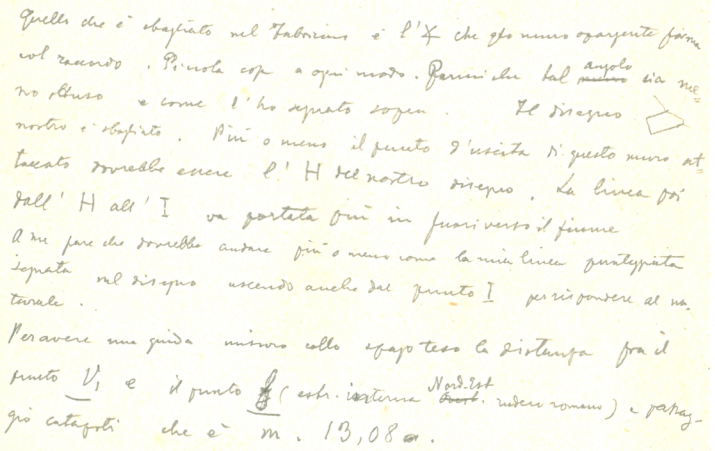 Quello che è sbagliato nel Fabricius è l'∢ che questo muro sporgente forma
col raccordo. Piccola cosa a ogni modo. Parmi che tal angolo sia me=
no ottuso e come l'ho segnato sopra. Il disegno
nostro è sbagliato. Più o meno il punto d'uscita di questo muro at=
taccato dovrebbe essere l'H del nostro disegno. La linea poi
dall'H all'I va portata più in fuori verso il fiume
A me pare che dovrebbe andare più o meno come la mia linea punteggiata
segnata sul disegno uscendo anche dal punto I per rispondere al na=
turale.
Per avere una guida misuro collo spago teso la distanza fra il
punto V₁ e il punto (estr. interna Nord-Est rudere romano)
che è m. 13,08